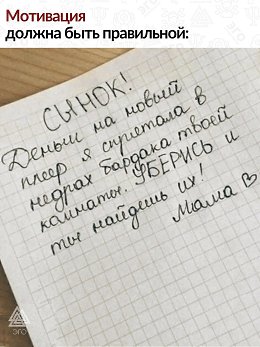 Мотивация
должна быть правильной:
СЫНОК!
Деньги на новый
плеер я спрятала в
недрах бардака твоей
комнаты. УБЕРИСЬ и
ты найдёшь их!
Мама
ЭГО